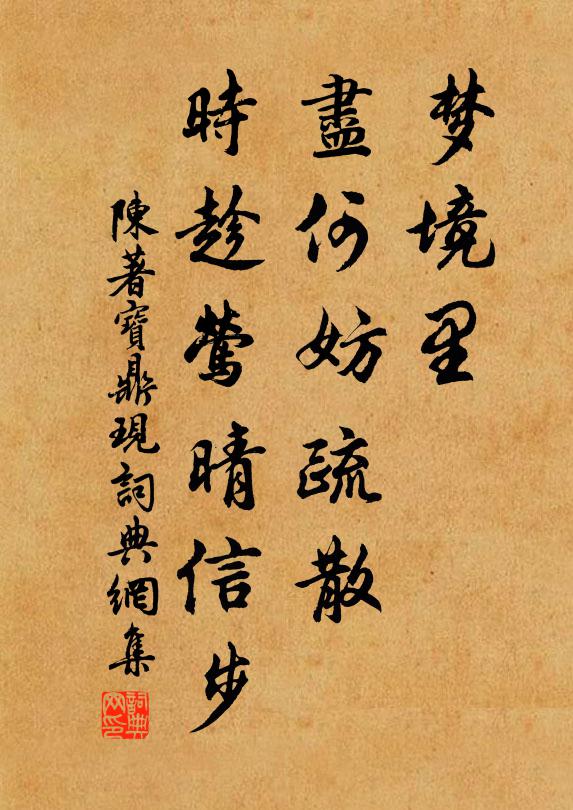 梦境里
盡何妨疏散
時趁鶯晴信步
陳著寶鼎現詞典網集
詞典網印